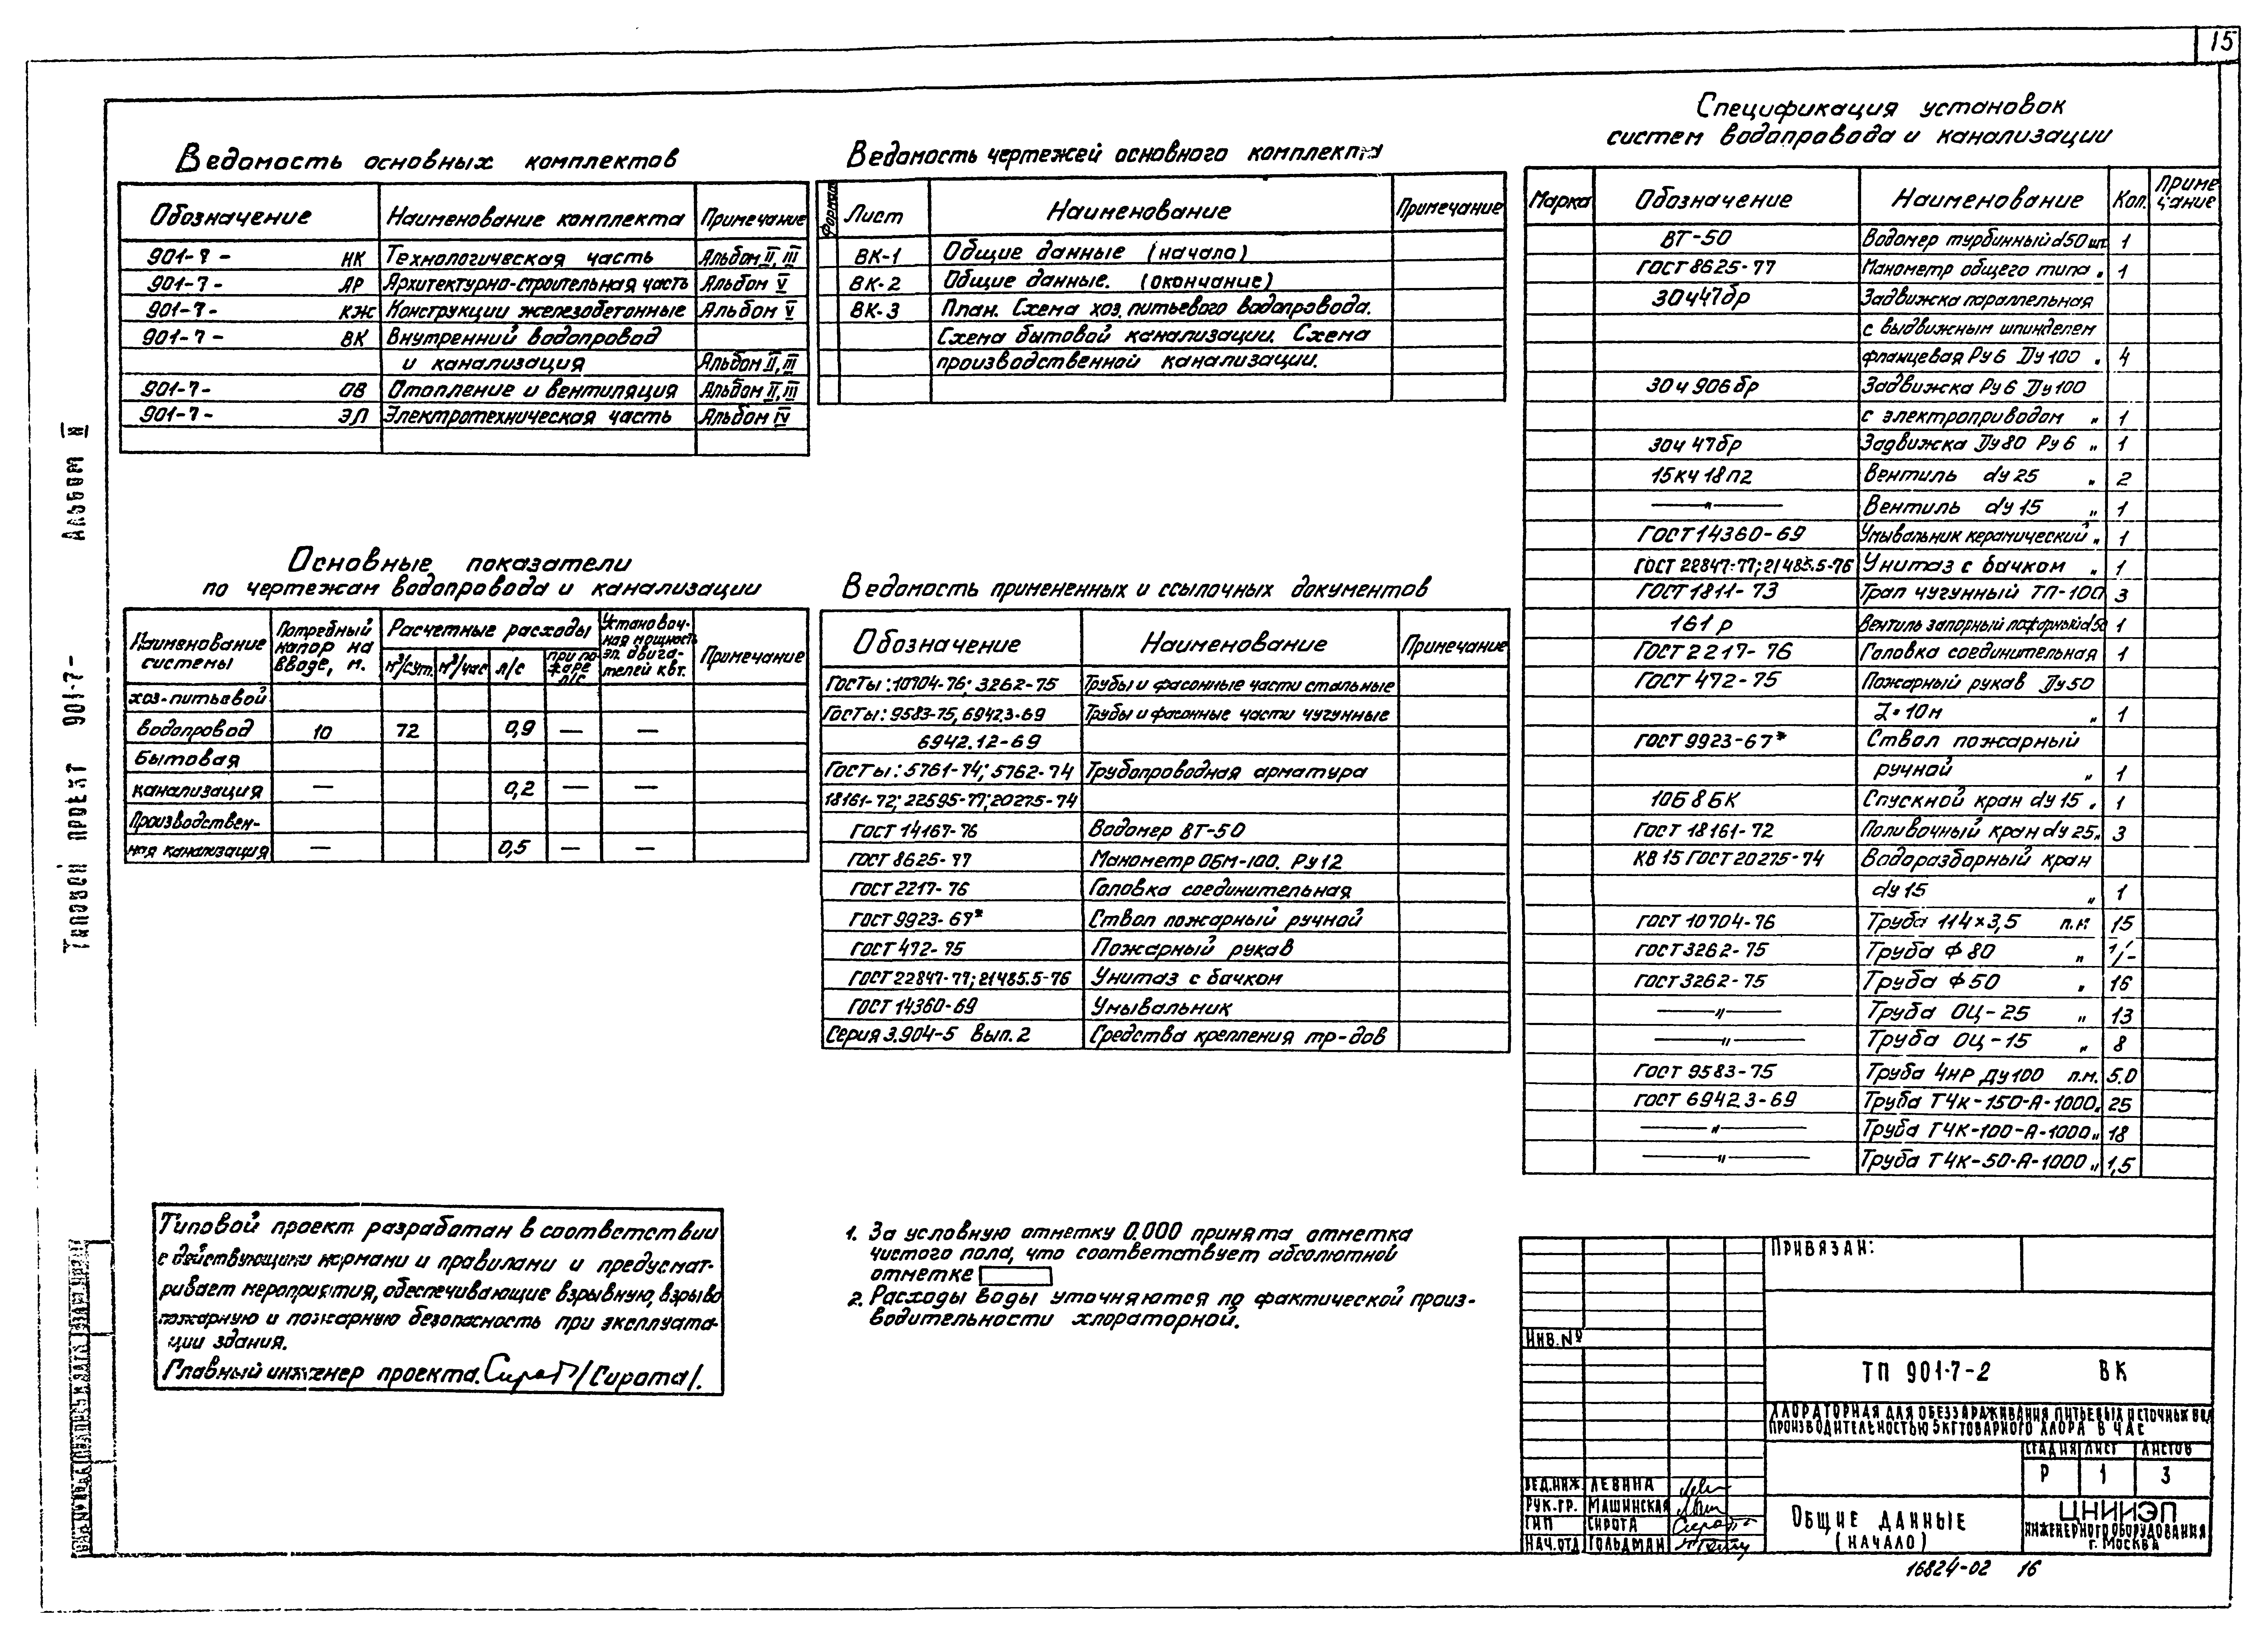 15
Ведомость основных комплектов
Обозначение Наименование комплекта Примечание
901-7- НК Технологическая часть Альбом II, III
901-7- АР Архитектурно-строительная часть Альбом V
901-7- КЖ Конструкции железобетонные Альбом V
901-7- ВК Внутренний водопровод
и канализация Альбом II, III
901-7- ОВ Отопление и вентиляция Альбом II, III
901-7- ЭЛ Электротехническая часть Альбом IV
Ведомость чертежей основного комплекта
Формат Лист Наименование Примечание
ВК-1 Общие данные (начало)
ВК-2 Общие данные. (окончание)
ВК-3 План. Схема хоз. питьевого водопровода.
Схема бытовой канализации. Схема
производственной канализации.
Спецификация установок
систем водопровода и канализации
Марка Обозначение Наименование Кол. Приме-
чание
ВТ-50 Водомер турбинный d50 шт. 1
ГОСТ 8625-77 Манометр общего типа " 1
30ч47бр Задвижка параллельная
с выдвижным шпинделем
фланцевая Ру6 Ду100 " 4
30ч906бр Задвижка Ру6 Ду100
с электроприводом " 1
30ч47бр Задвижка Ду80 Ру6 " 1
15кч18п2 Вентиль dу25 " 2
—"— Вентиль dу15 " 1
ГОСТ 14360-69 Умывальник керамический " 1
ГОСТ 22847-77; 21485.5-76 Унитаз с бачком " 1
ГОСТ 1811-73 Трап чугунный ТП-100 3
1б1р Вентиль запорный пожарный d50 1
ГОСТ 2217-76 Головка соединительная 1
ГОСТ 472-75 Пожарный рукав Ду50
L=10м " 1
ГОСТ 9923-67* Ствол пожарный
ручной " 1
10Б8БК Спускной кран dу15 " 1
ГОСТ 18161-72 Поливочный кран dу25 " 3
КВ15 ГОСТ 20275-74 Водоразборный кран
dу15 " 1
ГОСТ 10704-76 Труба 114×3,5 п.м. 15
ГОСТ 3262-75 Труба Ф80 "
ГОСТ 3262-75 Труба Ф50 " 16
—"— Труба ОЦ-25 " 13
—"— Труба ОЦ-15 " 8
ГОСТ 9583-75 Труба ЧНР Ду100 п.м. 5.0
ГОСТ 6942.3-69 Труба ТЧК-150-А-1000 " 25
—"— Труба ТЧК-100-А-1000 " 18
—"— Труба ТЧК-50-А-1000 " 1,5
Основные показатели
по чертежам водопровода и канализации
Наименование системы Потребный напор на вводе, м. Расчетные расходы Установочная мощность эл. двигателей квт. Примечание
м³/сут. м³/час л/с при пожаре л/с
Хоз-питьевой
водопровод 10 72 0,9 — —
Бытовая
канализация — 0,2 — —
Производствен-
ная канализация — 0,5 — —
Ведомость примененных и ссылочных документов
Обозначение Наименование Примечание
ГОСТы: 10704-76; 3262-75 Трубы и фасонные части стальные
ГОСТы: 9583-75, 6942.3-69 Трубы и фасонные части чугунные
6942.12-69
ГОСТы: 5761-74; 5762-74 Трубопроводная арматура
18161-72; 22595-77; 20275-74
ГОСТ 14167-76 Водомер ВТ-50
ГОСТ 8625-77 Манометр ОБМ-100. РУ12
ГОСТ 2217-76 Головка соединительная
ГОСТ 9923-67* Ствол пожарный ручной
ГОСТ 472-75 Пожарный рукав
ГОСТ 22847-77; 21485.5-76 Унитаз с бачком
ГОСТ 14360-69 Умывальник
Серия 3.904-5 вып. 2 Средства крепления тр-дов
Типовой проект разработан в соответствии
с действующими нормами и правилами и предусмат-
ривает мероприятия, обеспечивающие взрывную, взрыво
пожарную и пожарную безопасность при эксплуата-
ции здания.
Главный инженер проекта. Сирота /Сирота/.
1. За условную отметку 0.000 принята отметка
чистого пола, что соответствует абсолютной
отметке
2. Расходы воды уточняются по фактической произ-
водительности хлораторной.
Типовой проект 901-7- Альбом II
Привязан:
Инв.№
ТП 901-7-2 ВК
Хлораторная для обеззараживания питьевых и сточных вод
производительностью 5кг товарного хлора в час
Стадия Лист Листов
Р 1 3
Вед.инж. Левина
Рук.гр. Машинская
ГИП Сирота
Нач.отд Гольдман
Общие данные
(начало)
ЦНИИЭП
инженерного оборудования
г. Москва
16824-02 16